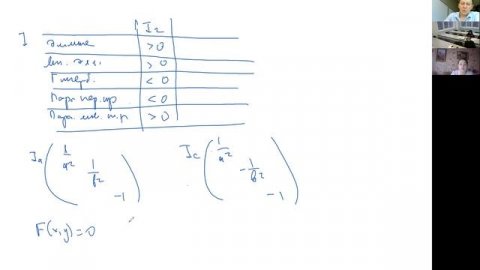 I₂
I
эллипс > 0
мн. элл. > 0
Гиперб. < 0
Пара пер. пр < 0
Пара мн. п. р > 0
Iₐ ( 1/a² 1/b² -1 ) I_c ( 1/a² -1/b² -1 )
F(x,y)=0